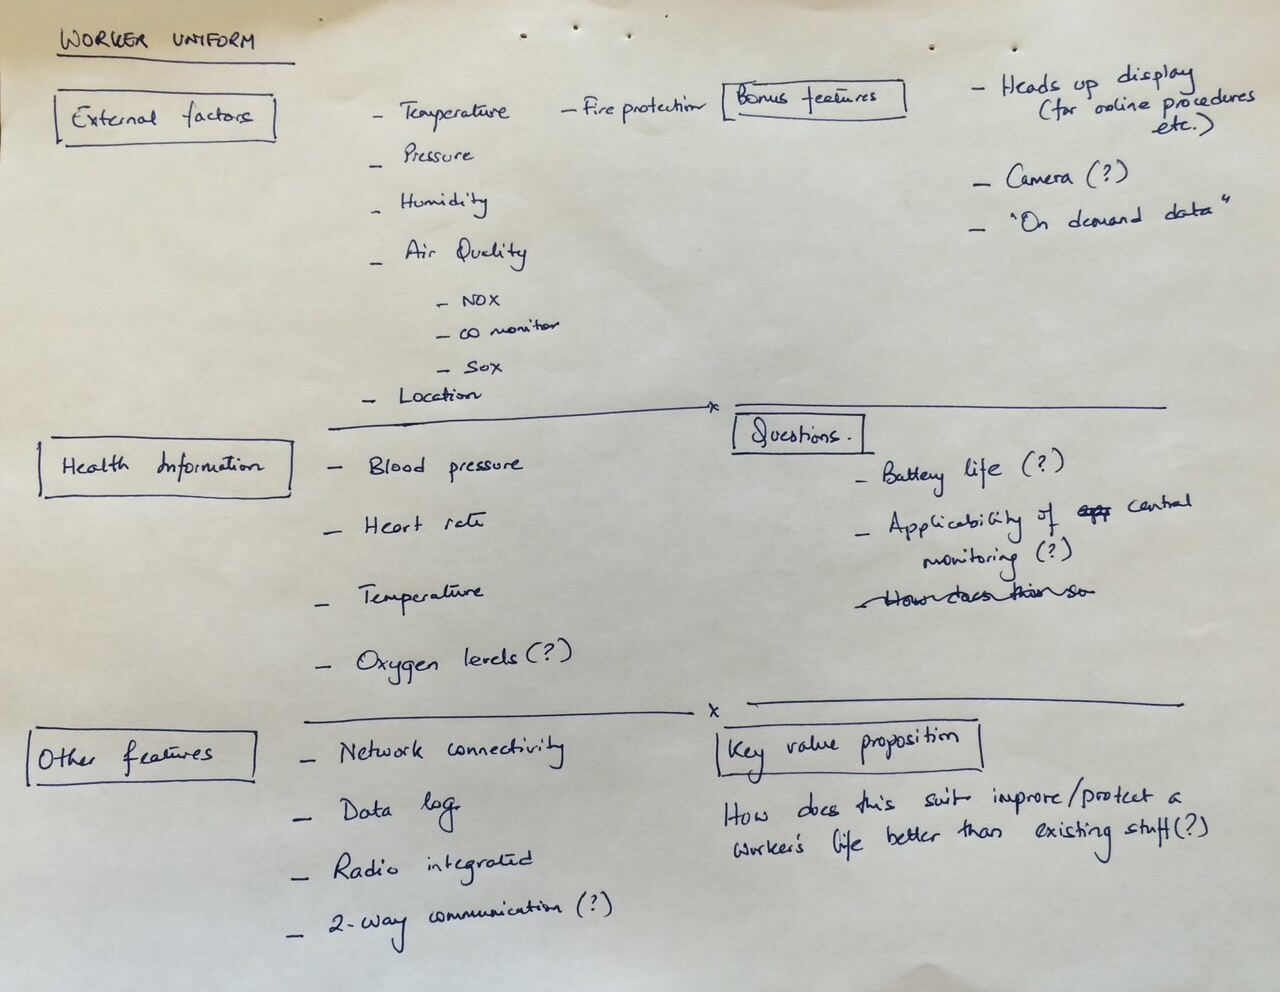 WORKER UNIFORM
External factors
- Temperature
- Fire protection
- Pressure
- Humidity
- Air Quality
- NOX
- CO monitor
- SOX
- Location
Bonus features
- Heads up display
(for online procedures
etc.)
- Camera (?)
- "On demand data"
Health Information
- Blood pressure
- Heart rate
- Temperature
- Oxygen levels (?)
Questions.
- Battery life (?)
- Applicability of app central
monitoring (?)
- How does this so
Other features
- Network connectivity
- Data log
- Radio integrated
- 2-way communication (?)
Key value proposition
How does this suit improve/protect a
worker's life better than existing stuff (?)